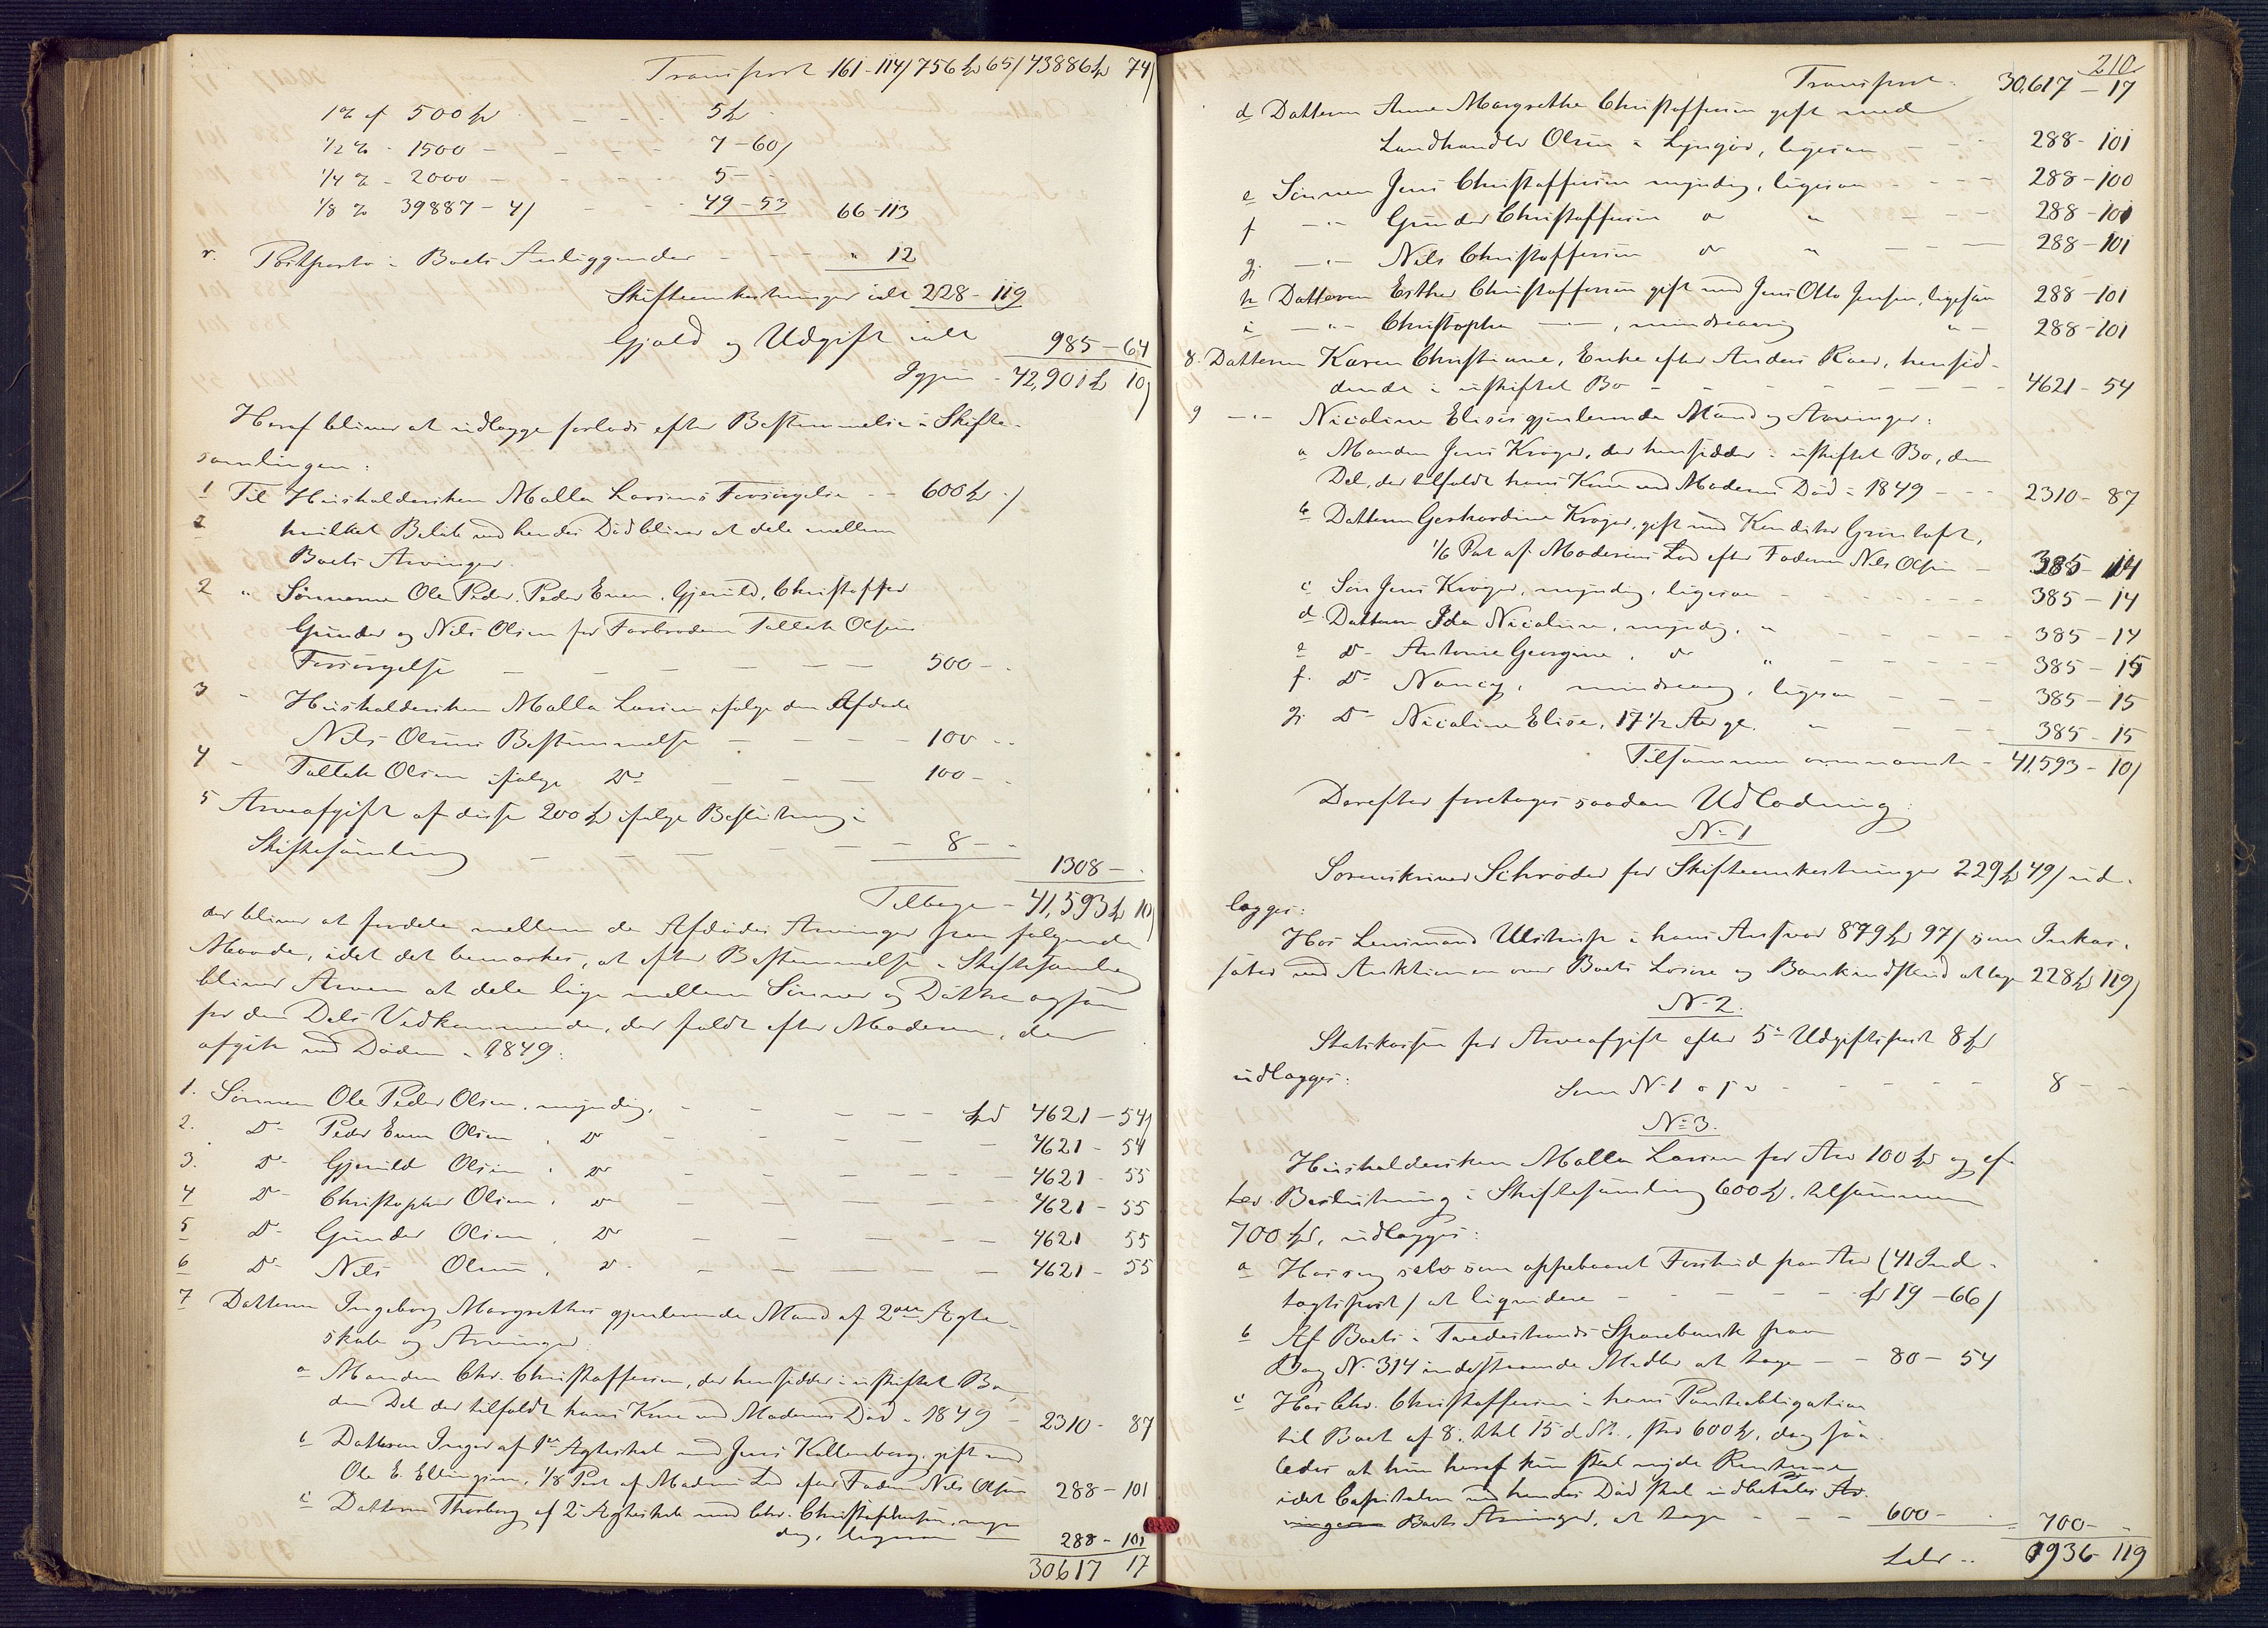 Transport 161-114/ 756 Spd 65/ 43886 Spd 74/
1% af 500 Spd - - - 5 Spd
1/2 % - 1500 - - - 7-60/
1/4 % - 2000 - - - 5 -
1/8 % 39887-41 - - 49-53 66-113
r. Postporto i Boets Anliggender - - - " 12
Skifteomkostninger ialt 228-119
Gjæld og Udgift ialt 985-64
Igjen - 42,901 Spd 10/
Heraf bliver at udlægge forlods efter Bestemmelse i Skifte-
samlingen:
1 Til Husholdersken Malla Larsens Forsørgelse - - 600 Spd -/
hvilket Beløb ved hendes Død bliver at dele mellem
Boets Arvinger.
2 " Sønnerne Ole Peder, Peder Even, Gjeruld, Christoffer
Gunder og Nils Olsen for Farbroderen Tallak Olsens
Forsørgelse - - - - - 500 - -
3 - Husholdersken Malla Larsen ifølge den Afdøde
Nils Olsens Bestemmelse - - - - 100 - -
4 - Tallak Olsen ifølge Do - - - 100 - -
5 Arveafgift af disse 200 Spd ifølge Beslutning i
Skiftesamling - - - - - 8 - -
1308 - -
Tilbage - 41,593 Spd 10/
der bliver at fordele mellem de Afdødes Arvinger paa følgende
Maade, idet det bemærkes, at efter Bestemmelse i Skiftesamling
bliver Arven at dele lige mellem Sønner og Døttre ogsaa
for den Dels Vedkommende, der faldt efter Moderen, der
afgik ved Døden i 1849:
1. Sønnen Ole Peder Olsen, myndig, - - - - Spd 4621-54/
2. Do Peder Even Olsen, Do - - - - 4621-54
3. Do Gjeruld Olsen, Do - - - - 4621-55
4 Do Christopher Olsen, Do - - - - 4621-55
5 Do Gunder Olsen, Do - - - - 4621 55
6 Do Nils Olsen, Do - - - - 4621-55
7 Datteren Ingeborg Margrethes gjenlevende Mand af 2det Ægte-
skab og Arvinger:
a Manden Chr. Christoffersen, der hensidder i uskiftet Bo,
den Del der tilfaldt hans Kone ved Moderens Død i 1849 - 2310-87
b Datteren Inger af 1ste Ægteskab med Jens Kallenberg, gift med
Ole E. Ellingsen, 1/8 Part af Moderens Lod efter Faderen Nils Olsen 288-101
c Datteren Thorborg af 2det Ægteskab med Chr. Christoffersen, myn-
dig, ligesaa - 288-101
30617 17
210
Transport - 30,617-17
d Datteren Anne Margrethe Christoffersen gift med
Landhandler Olsen i Lyngør, ligesaa - - - 288-101
e Sønnen Jens Christoffersen myndig, ligesaa - - - 288-100
f -"- Gunder Christoffersen Do " - - - 288-101
g. -"- Nils Christoffersen Do " - - - 288-101
h Datteren Esther Christoffersen gift med Jens Otto Jensen, ligesaa 288-101
i -"- Christophe -"-, mindreaarig " - 288-101
8. Datteren Karen Christiane, Enke efter Anders Roer, hensid-
dende i uskiftet Bo - - - - - - 4621-54
9 -"- Nicoline Elises gjenlevende Mand og Arvinger:
a Manden Jens Krøger, der hensidder i uskiftet Bo, den
Del, der tilfaldt hans Kone ved Moderens Død i 1849 - - - 2310-87
b Datteren Gerhardine Krøger, gift med Konditor Grønloft,
1/6 Part af Moderens Lod efter Faderen Nils Olsen - 385-14
c Søn Jens Krøger, myndig, ligesaa - - - - - 385-14
d Datteren Ida Nicoline, myndig, " - - - - - 385-14
e Do Antonie Georgine, Do " - - - - 385-15
f. Do Nancy, mindreaarig, ligesaa - - - 385-15
g. Do Nicoline Elise, 17 1/2 Aar gl. " - - - 385-15
Tilsammen ovennævnte - 41,593-10/
Derefter foretages saadan Udlodning:
No 1
Sorenskriver Schrøder for Skifteomkostninger 229 Spd 49/ ud-
lægges:
Hos Lensmand Ulstrup i hans Ansvar 879 Spd 97/ som Inkas-
sator ved Auktionen over Boets Løsøre og Bankindskud at tage 228 Spd 119/
No 2.
Statskassen for Arveafgift efter 5te Udgiftspost 8 Spd
udlægges:
Som No 1 - - - - - - 8 - -
No 3.
Husholdersken Malla Larsen for Arv 100 Spd og ef-
ter Beslutning i Skiftesamling 600 Spd, tilsammen
700 Spd, udlægges:
a Hos sig selv som oppebaaret Forskud paa Arv (41 Ind-
tægtspost) at liqvidere - - - - - Spd 19-66/
b Af Boets i Tvedestrands Sparebank paa
Bog No 314 indestaaende Midler at tage - - 80-54
c Hos Chr. Christoffersen i hans Panteobligation
til Boet af 8. 15 d. M., stor 600 Spd, dog saa-
ledes at hun heraf kun skal nyde Renterne
idet Capitalen ved hendes Død skal udbetales Ar-
vingerne Boets Arvinger, at tage - - - 600 - - 700 - -
Lat. - - 936-119